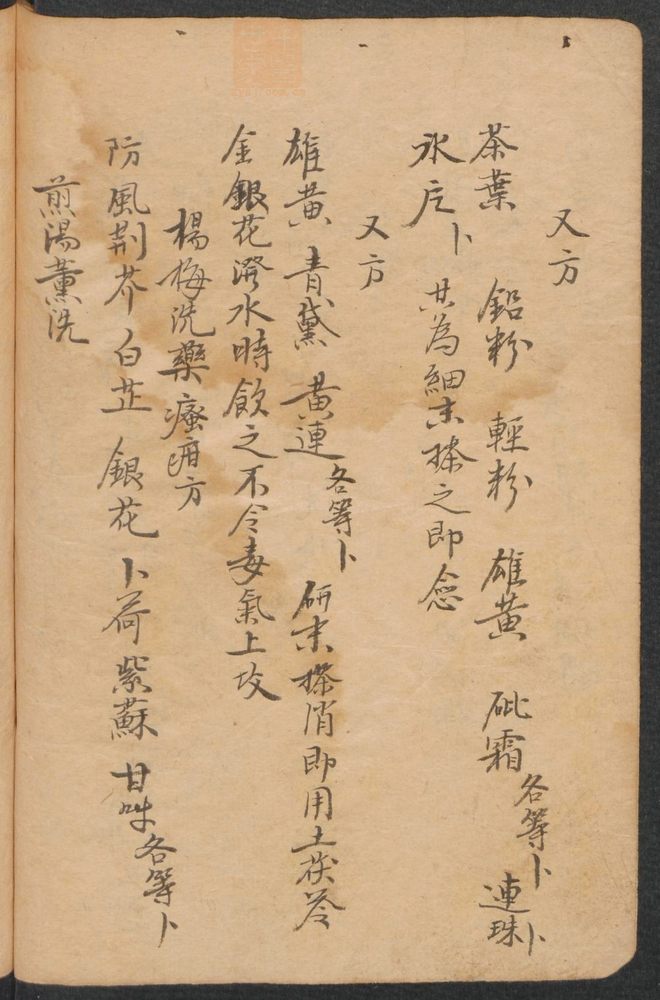 又方
茶葉 鉛粉 輕粉 雄黃 砒霜 各等卜 連珠卜
氷片卜 共為細末搽之即愈
又方
雄黃 青黛 黃連 各等卜 研末搽消即用土茯苓
金銀花澄水時飲之不令毒氣上攻
楊梅洗藥瘙㾦方
防風荆芥白芷 銀花 卜荷紫蘇 甘艸 各等卜
煎湯薰洗